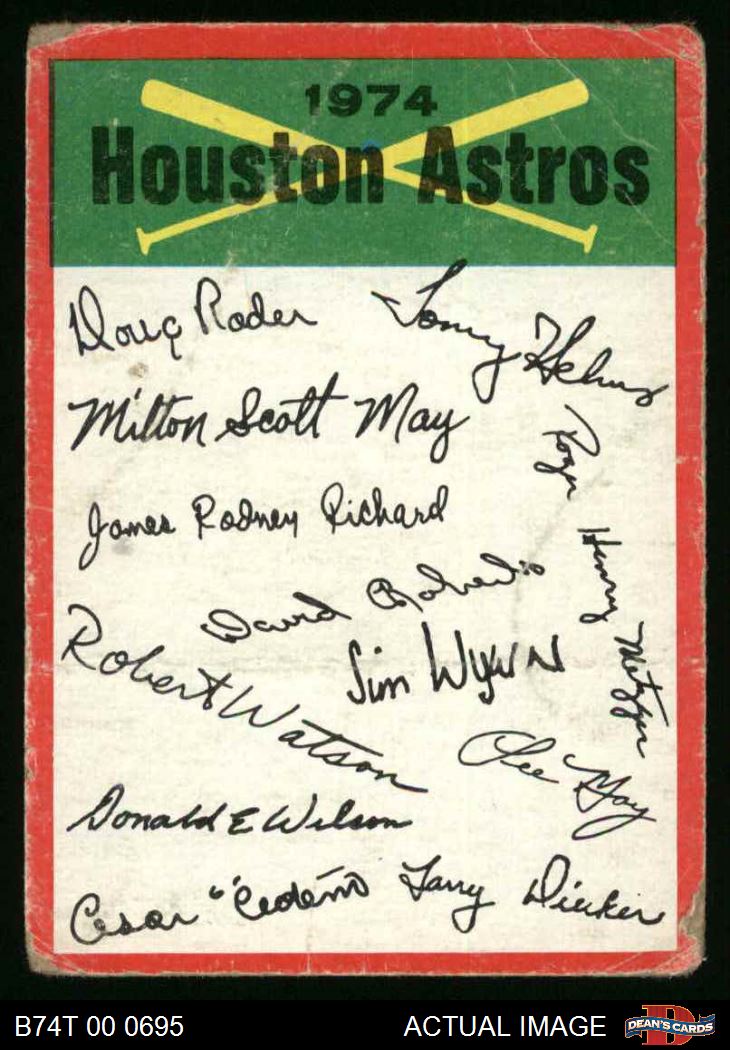 1974
Houston Astros
Doug Rader
Tommy Helms
Milton Scott May
Roger Henry Metzger
James Rodney Richard
David Roberts
Robert Watson
Jim Wynn
Lee May
Donald E Wilson
Cesar Cedeño
Larry Dierker
B74T 00 0695
ACTUAL IMAGE
D
DEAN'S CARDS